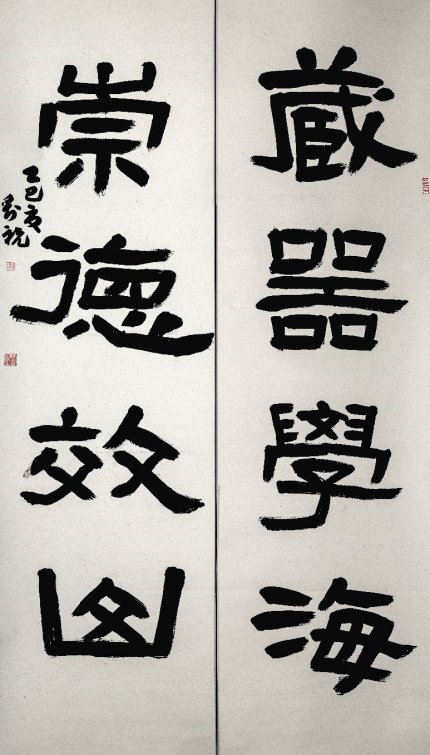 藏器學海
崇德效山
乙巳夏